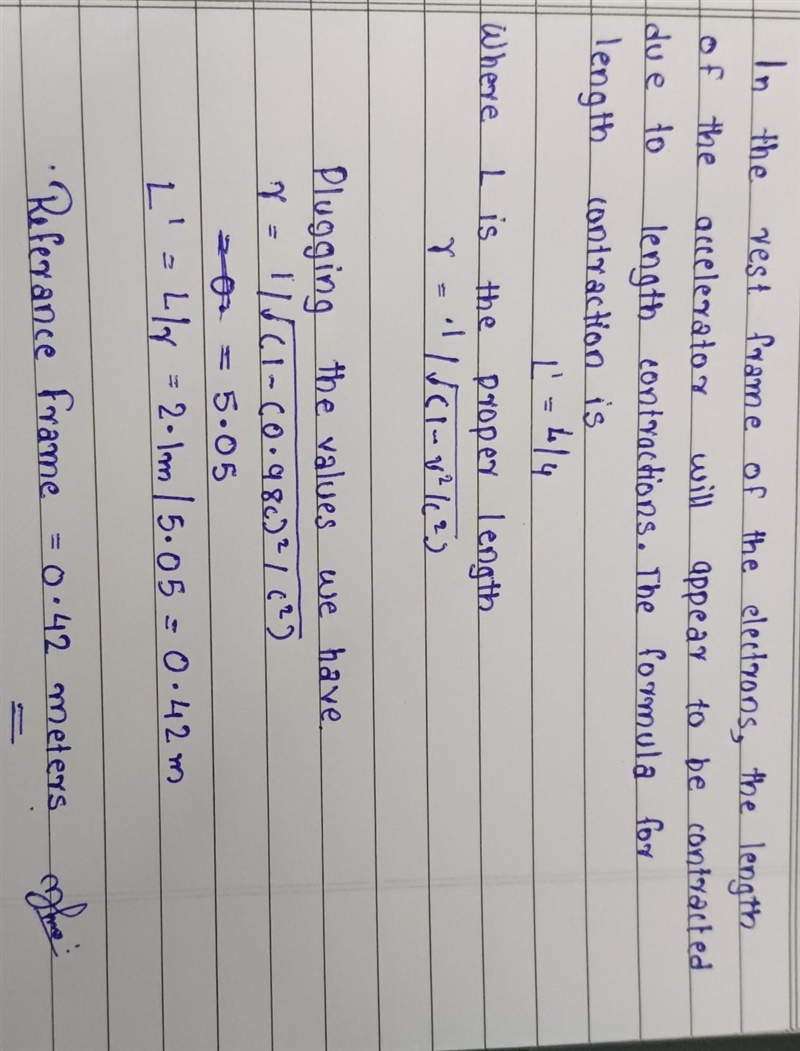 In the rest frame of the electrons, the length
of the accelerator will appear to be contracted
due to length contractions. The formula for
length contraction is
L' = L/γ
Where L is the proper length
γ = 1/√(1-v²/c²)
Plugging the values we have.
γ = 1/√(1-(0.98c)²/c²)
= 5.05
L' = L/γ = 2.1m/5.05 = 0.42m
Referance frame = 0.42 meters